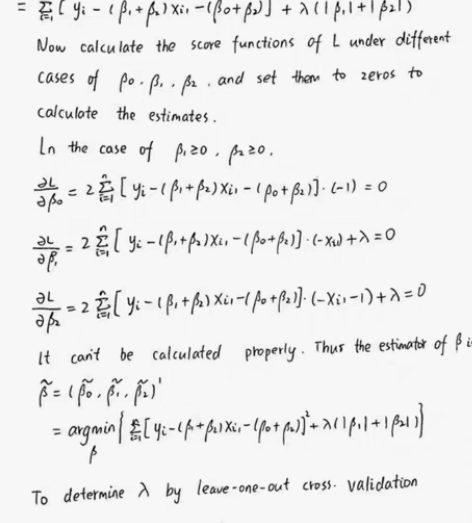 = Σ_{i=1}^{n} [ yi - (β1+β2) xi1 - (β0+β2)] + λ(|β1|+|β2|)
Now calculate the score functions of L under different
cases of β0, β1, β2, and set them to zeros to
calculate the estimates.
In the case of β1≥0, β2≥0.
∂L/∂β0 = 2 Σ_{i=1}^{n} [ yi - (β1+β2) xi1 - (β0+β2)]·(-1) = 0
∂L/∂β1 = 2 Σ_{i=1}^{n} [ yi - (β1+β2) xi1 - (β0+β2)]·(-xi1)+λ=0
∂L/∂β2 = 2 Σ_{i=1}^{n} [ yi - (β1+β2) xi1 - (β0+β2)]·(-xi1-1)+λ=0
It can't be calculated properly. Thus the estimator of β
β̃ = (β̃0, β̃1, β̃2)'
= argmin_β { Σ_{i=1}^{n} [yi-(β1+β2)xi1-(β0+β2)]²+λ(|β1|+|β2|)}
To determine λ by leave-one-out cross-validation